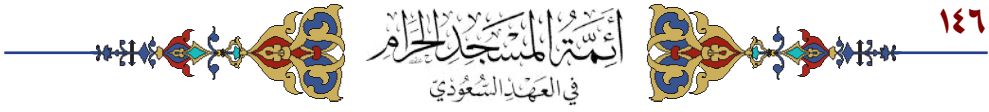 ١٤٦
أئمة المسجد الحرام
في العهد السعودي